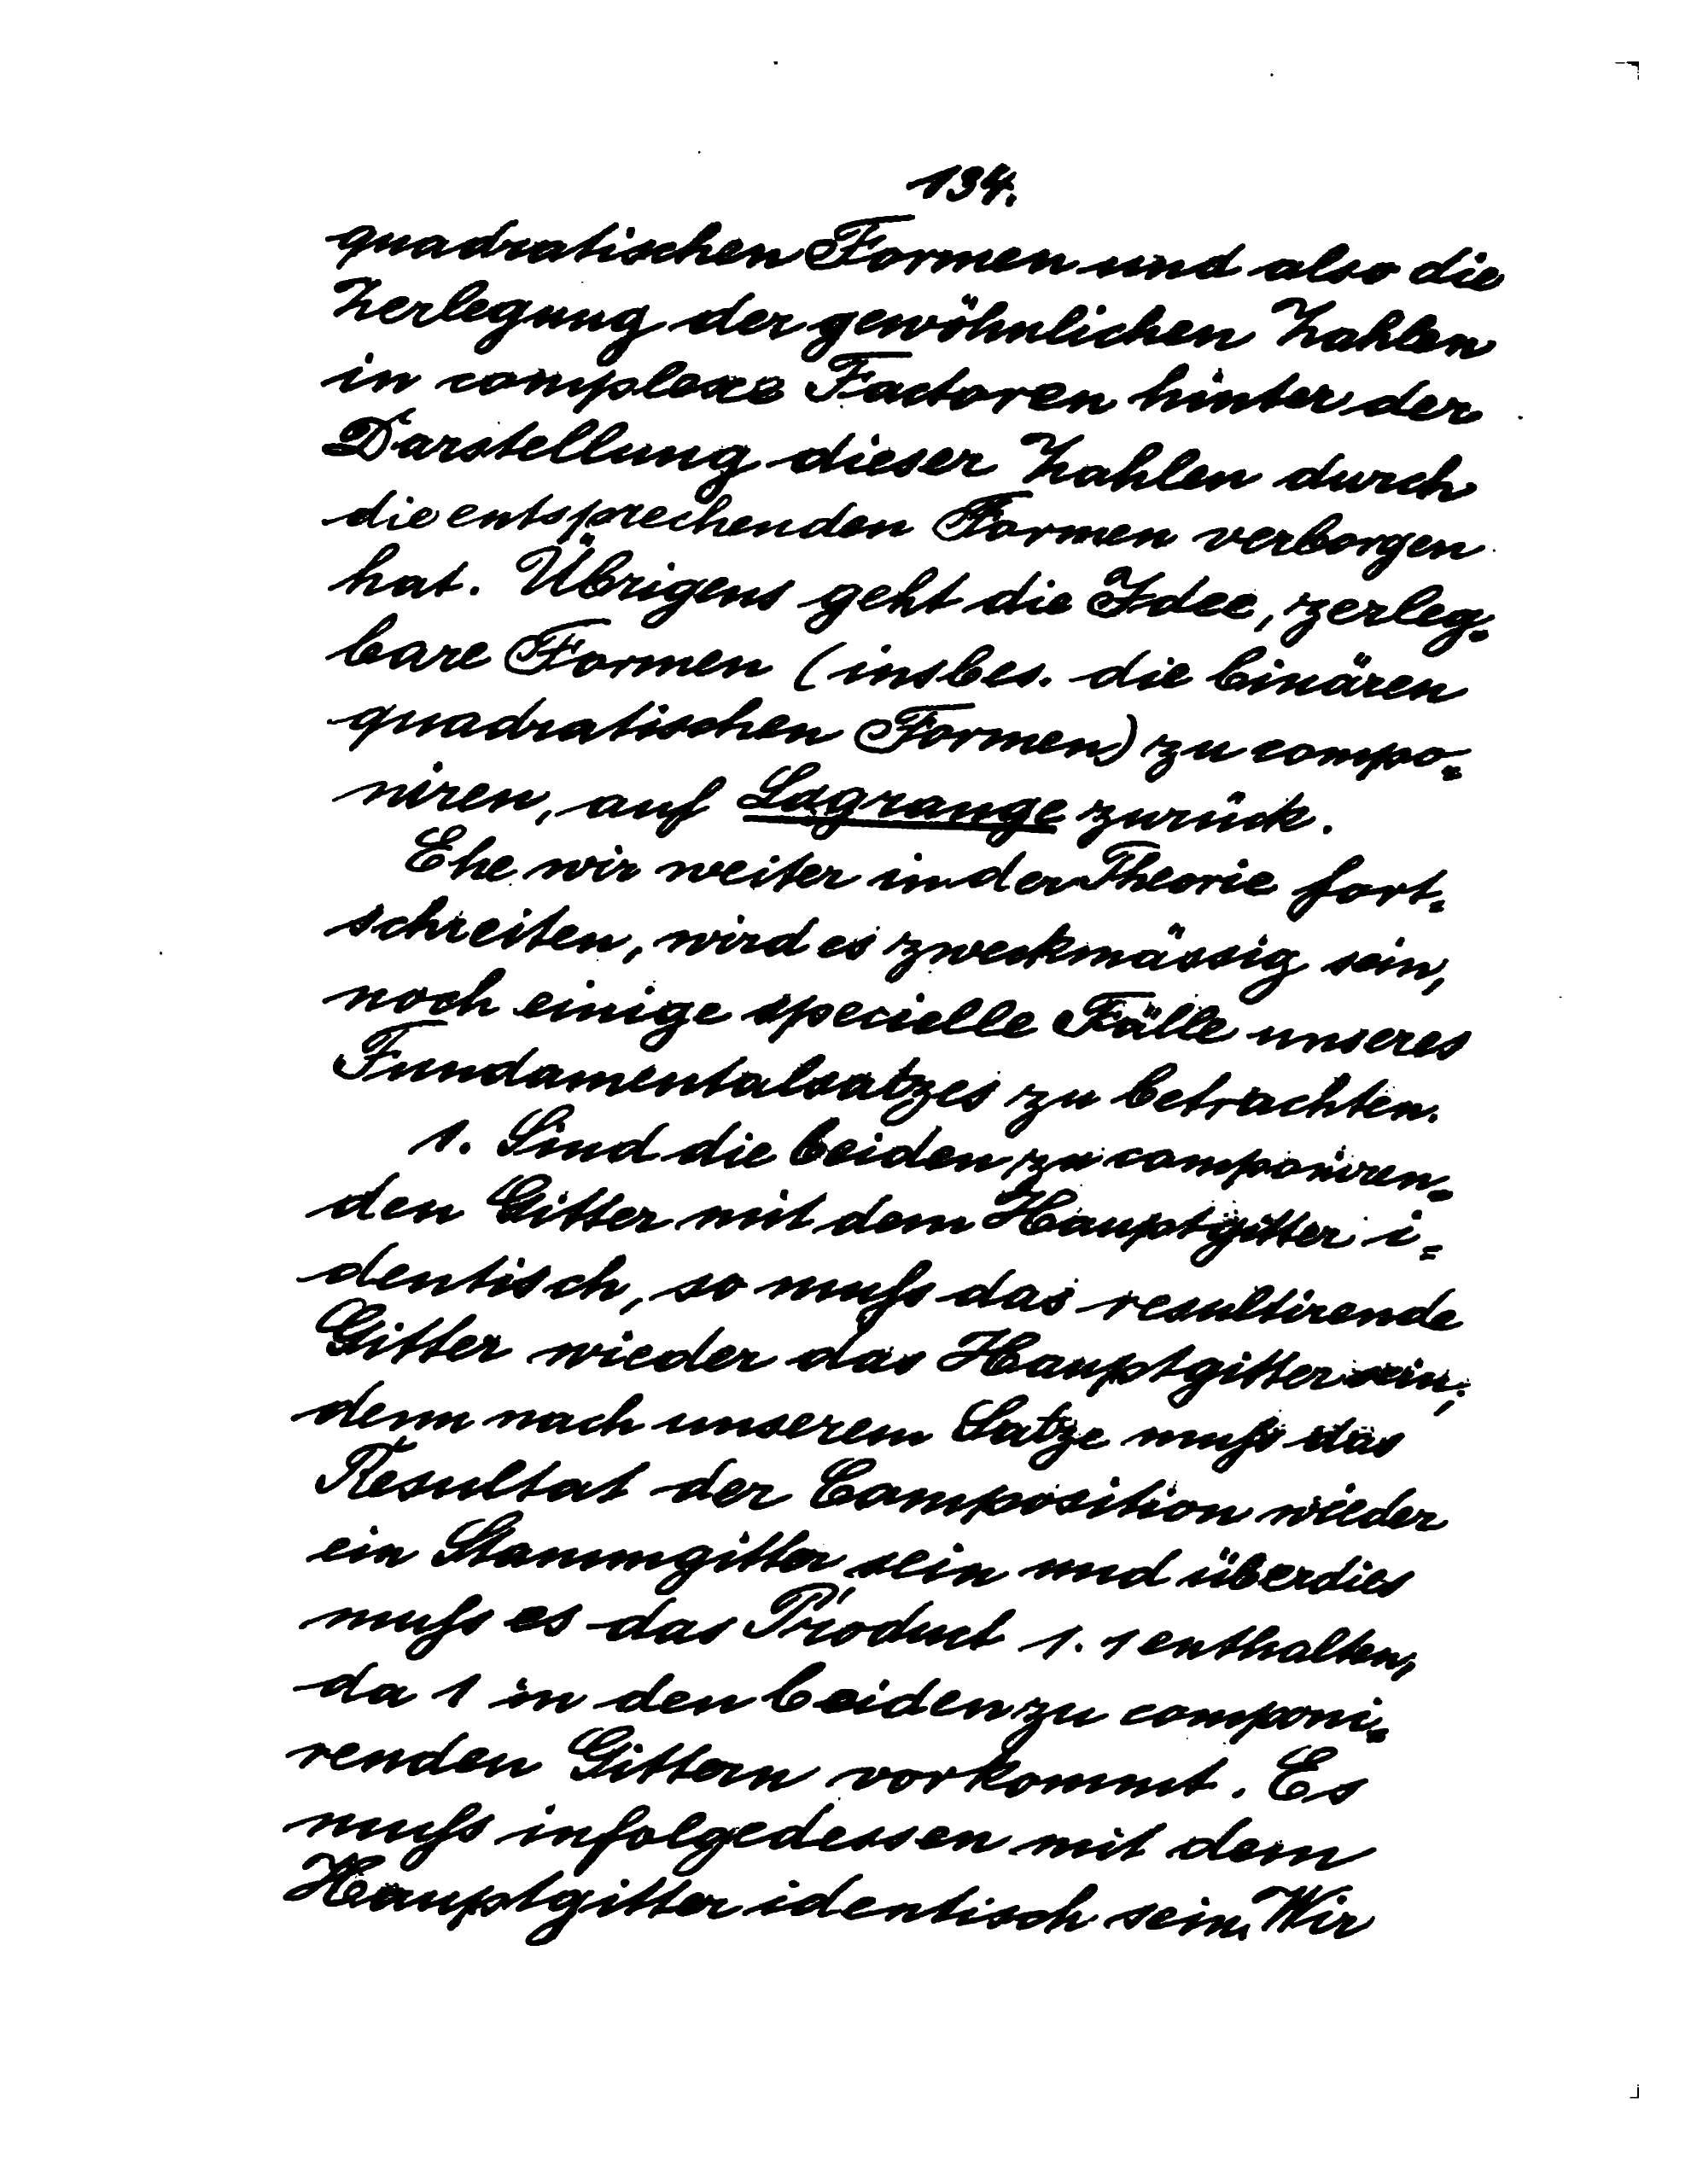 134.
quadratischen Formen und also die
Zerlegung der gewöhnlichen Zahlen
in complexe Factoren hinter der
Darstellung dieser Zahlen durch
die entsprechenden Formen verborgen
hat. Übrigens geht die Idee, zerleg=
bare Formen (insbes. die binären
quadratischen Formen) zu compo=
niren, auf Lagrange zurück.
Ehe wir weiter in der Theorie fort=
schreiten, wird es zweckmässig sein,
noch einige specielle Fälle unseres
Fundamentalsatzes zu betrachten.
1. Sind die beiden zu componiren=
den Gitter mit dem Hauptgitter i=
dentisch, so muſs das resultirende
Gitter wieder das Hauptgitter sein;
denn nach unserem Satze muſs das
Resultat der Composition wieder
ein Stammgitter sein und überdies
muſs es das Product 1. 1 enthalten,
da 1 in den beiden zu componi=
renden Gittern vorkommt. Es
muſs infolgedessen mit dem
Hauptgitter identisch sein. Wir